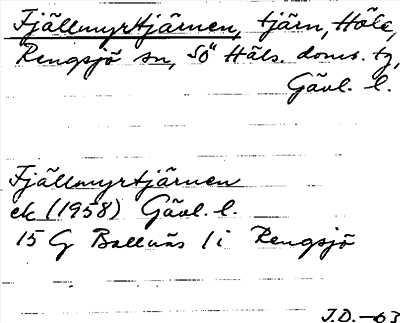 Fjällmyrtjärnen, tjärn, Höle,
Rengsjö sn, Sö Häls. doms. tg,
Gävl. l.
Fjällmyrtjärnen
ek (1958) Gävl. l.
15 G Bollnäs 1 i Rengsjö
J.D.-63